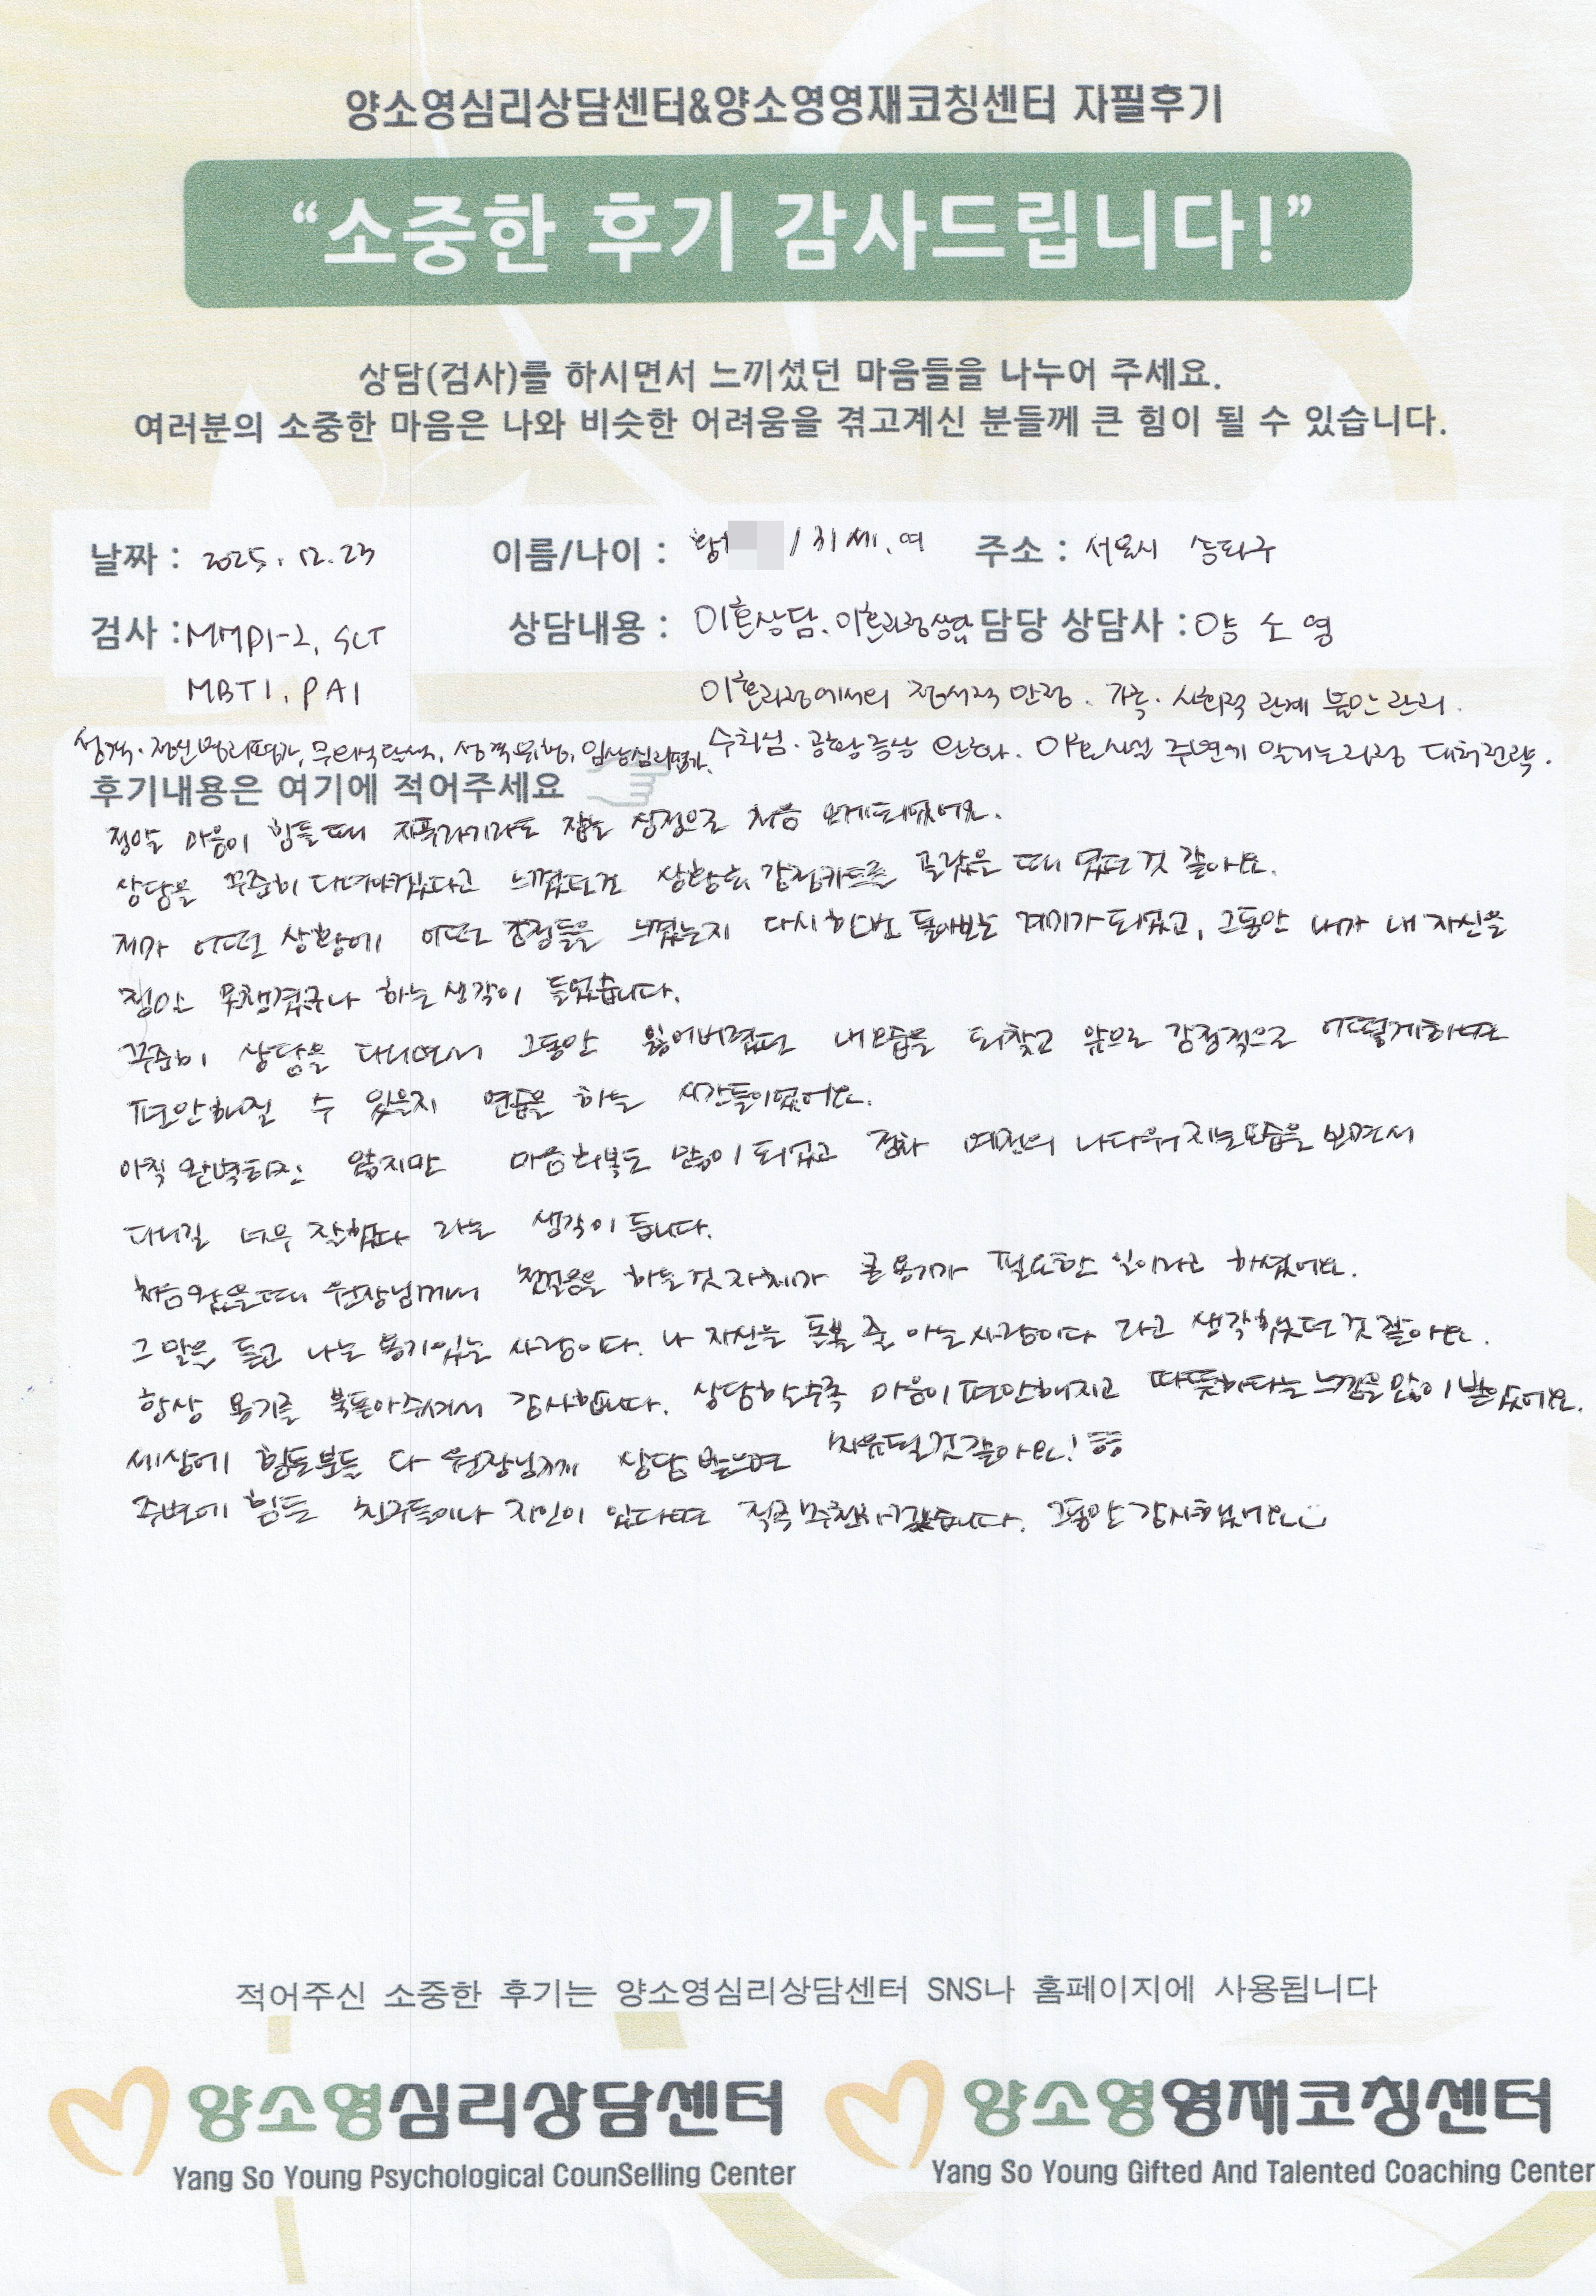 양소영심리상담센터&양소영영재코칭센터 자필후기
“소중한 후기 감사드립니다!”
상담(검사)를 하시면서 느끼셨던 마음들을 나누어 주세요.
여러분의 소중한 마음은 나와 비슷한 어려움을 겪고계신 분들께 큰 힘이 될 수 있습니다.
날짜 : 2025. 12. 23 이름/나이 : 황 / 31세. 여 주소 : 서울시 송파구
검사 : MMPI-2, SCT 상담내용 : 이혼상담. 이혼과정상담 담당 상담사 : 양 소 영
MBTI. PAI 이혼과정에서의 정서적 안정. 가족·사회적 관계 불안 관리.
성격·정신병리평가, 무의식탐색, 성격유형, 임상심리평가. 수치심·공황증상 완화. 이혼사실 주변에 알리는과정 대처전략.
후기내용은 여기에 적어주세요
정말 마음이 힘들때 지푸라기라도 잡는 심정으로 처음 오게되었어요.
상담을 꾸준히 다녀야겠다고 느꼈던건 상황과 감정카드를 골랐을 때 였던것 같아요.
제가 어떤 상황에 어떤 감정들을 느꼈는지 다시한번 돌아보는 계기가 되었고, 그동안 내가 내 자신을
정말 못챙겼구나 하는 생각이 들었습니다.
꾸준히 상담을 다니면서 그동안 잃어버렸던 내모습을 되찾고 앞으로 감정적으로 어떻게하면
편안해질 수 있을지 연습을 하는 시간들이였어요.
아직 완벽하진 않지만 마음회복도 많이 되었고 점차 예전의 나다워지는모습을 보면서
다니길 너무 잘했다 라는 생각이 듭니다.
처음왔을때 원장님께서 첫걸음을 하는것 자체가 큰 용기가 필요한 일이라고 하셨어요.
그 말을 듣고 나는 용기있는 사람이다. 나 자신을 돌볼 줄 아는 사람이다 라고 생각했던것 같아요.
항상 용기를 북돋아주셔서 감사합니다. 상담할수록 마음이 편안해지고 따뜻하다는 느낌을 많이 받았어요.
세상에 힘든분들 다 원장님께 상담 받으면 치유될것같아요! ㅎㅎ
주변에 힘든 친구들이나 지인이 있다면 적극 추천하겠습니다. 그동안 감사했어요
적어주신 소중한 후기는 양소영심리상담센터 SNS나 홈페이지에 사용됩니다
양소영심리상담센터 양소영영재코칭센터
Yang So Young Psychological CounSelling Center Yang So Young Gifted And Talented Coaching Center